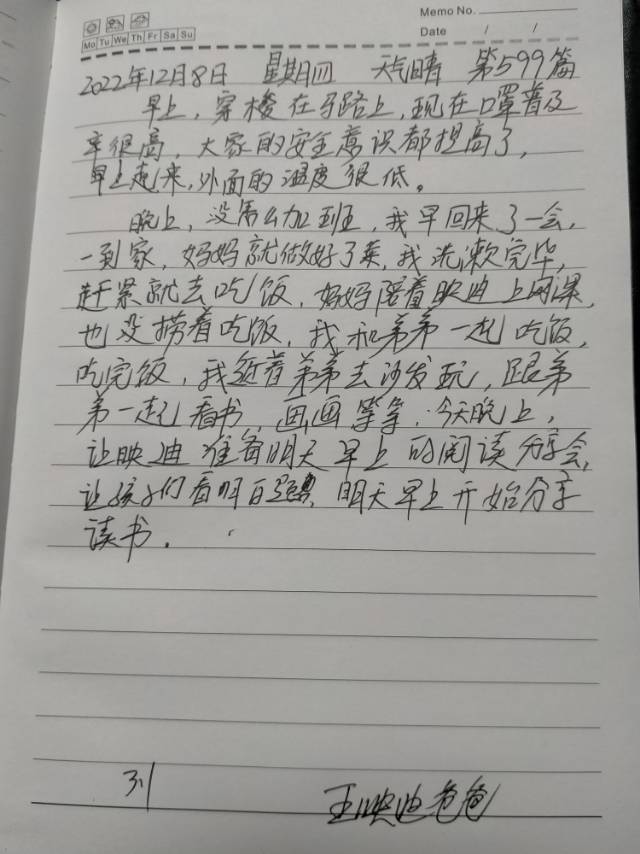 Memo No.
Mo Tu We Th Fr Sa Su
Date / /
2022年12月8日 星期四 天气晴 第599篇
早上，穿梭在马路上，现在口罩普及
率很高，大家的安全意识都提高了，
早上起来，外面的温度很低。
晚上，没怎么加班，我早回来了一会，
一到家，妈妈就做好了菜，我洗漱完毕，
赶紧就去吃饭，妈妈陪着映迪上网课，
也没捞着吃饭，我和弟弟一起吃饭，
吃完饭，我逗着弟弟去沙发玩，跟弟
弟一起看书，画画等等．今天晚上，
让映迪准备明天早上的阅读分享会，
让孩子们看明白 明天早上开始分享
读书．
王映迪爸爸